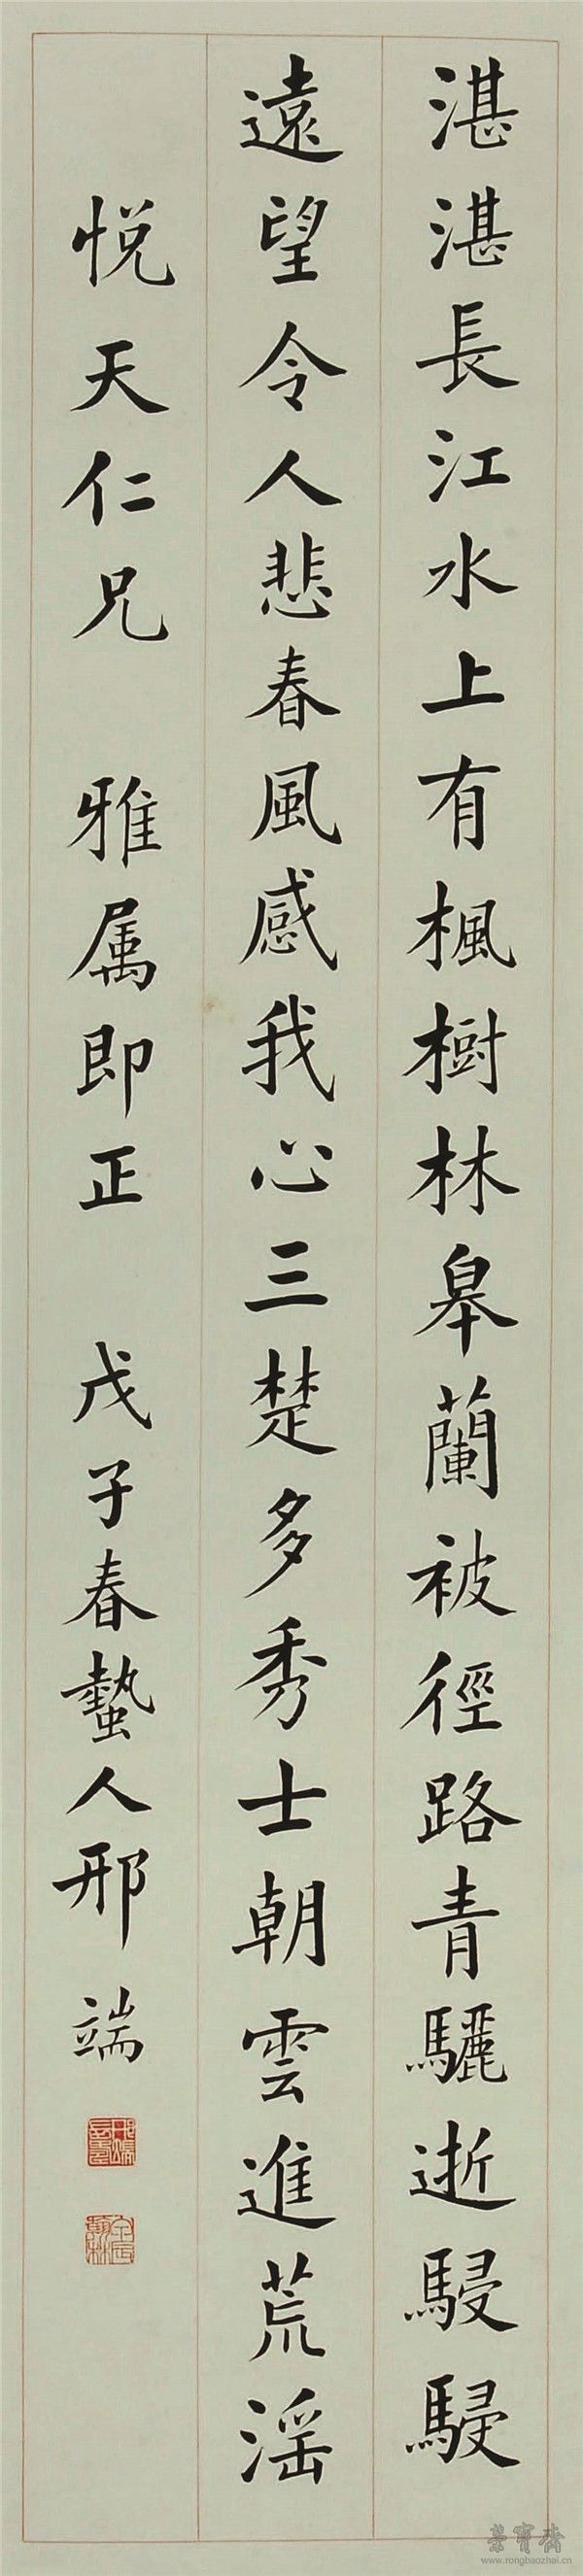 湛湛長江水上有楓樹林皋蘭被徑路青驪逝駸駸
遠望令人悲春風感我心三楚多秀士朝雲進荒淫
悦天仁兄 雅属即正 戊子春蟄人邢端
榮寶齋
www.rongbaozhai.cn